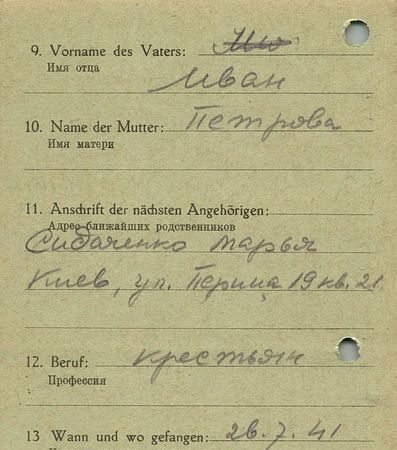 9. Vorname des Vaters:
Имя отца
Иван
10. Name der Mutter: Петрова
Имя матери
11. Anschrift der nächsten Angehörigen:
Адрес ближайших родственников
Сидаченко Марья
Киев, ул. 19 кв. 21.
12. Beruf: крестьян
Профессия
13 Wann und wo gefangen: 26. 7. 41